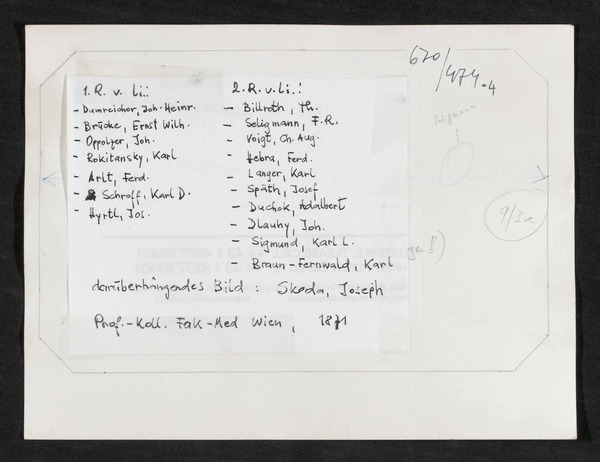 620/474-4
1. R. v. li.:
- Dumreicher, Joh. Heinr.
- Brücke, Ernst Wilh.
- Oppolzer, Joh.
- Rokitansky, Karl
- Arlt, Ferd.
- Schroff, Karl D.
- Hyrtl, Jos.
2. R. v. li.:
- Billroth, Th.
- Seligmann, F. R.
- Voigt, Ch. Aug.
- Hebra, Ferd.
- Langer, Karl
- Späth, Josef
- Duchek, Adalbert
- Dlauhy, Joh.
- Sigmund, Karl L.
Braun-Fernwald, Karl
darüberhängendes Bild : Skoda, Joseph
Prof.-Koll. Fak-Med Wien, 1871
Seligmann